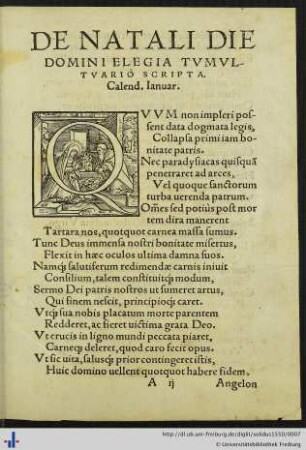 DE NATALI DIE
DOMINI ELEGIA TVMVL-
TVARIŌ SCRIPTA.
Calend. Ianuar.
QVVM non impleri pos-
sent data dogmata legis,
Collapsa primi iam bo-
nitate patris.
Nec paradysiacas quisquā
penetraret ad arces,
Vel quoque sanctorum
turba uerenda patrum.
Om̃es sed potiùs post mor
tem dira manerent
Tartara nos, quotquot carnea massa sumus.
Tunc Deus immensa nostri bonitate misertus,
Flexit in hæc oculos ultima damna suos.
Namq; salutiferum redimendæ carnis iniuit
Consilium, talem constituitq; modum,
Sermo Dei patris nostros ut sumeret artus,
Qui finem nescit, principioq; caret.
Vtq; sua nobis placatum morte parentem
Redderet, ac fieret uictima grata Deo.
Vt crucis in ligno mundi peccata piaret,
Carneq; deleret, quod caro fecit opus.
Vt sic uita, salusq; prior contingeret istis,
Huic domino uellent quotquot habere fidem.
A ij Angelon
http://dl.ub.uni-freiburg.de/diglit/solidus1550/0007
© Universitätsbibliothek Freiburg